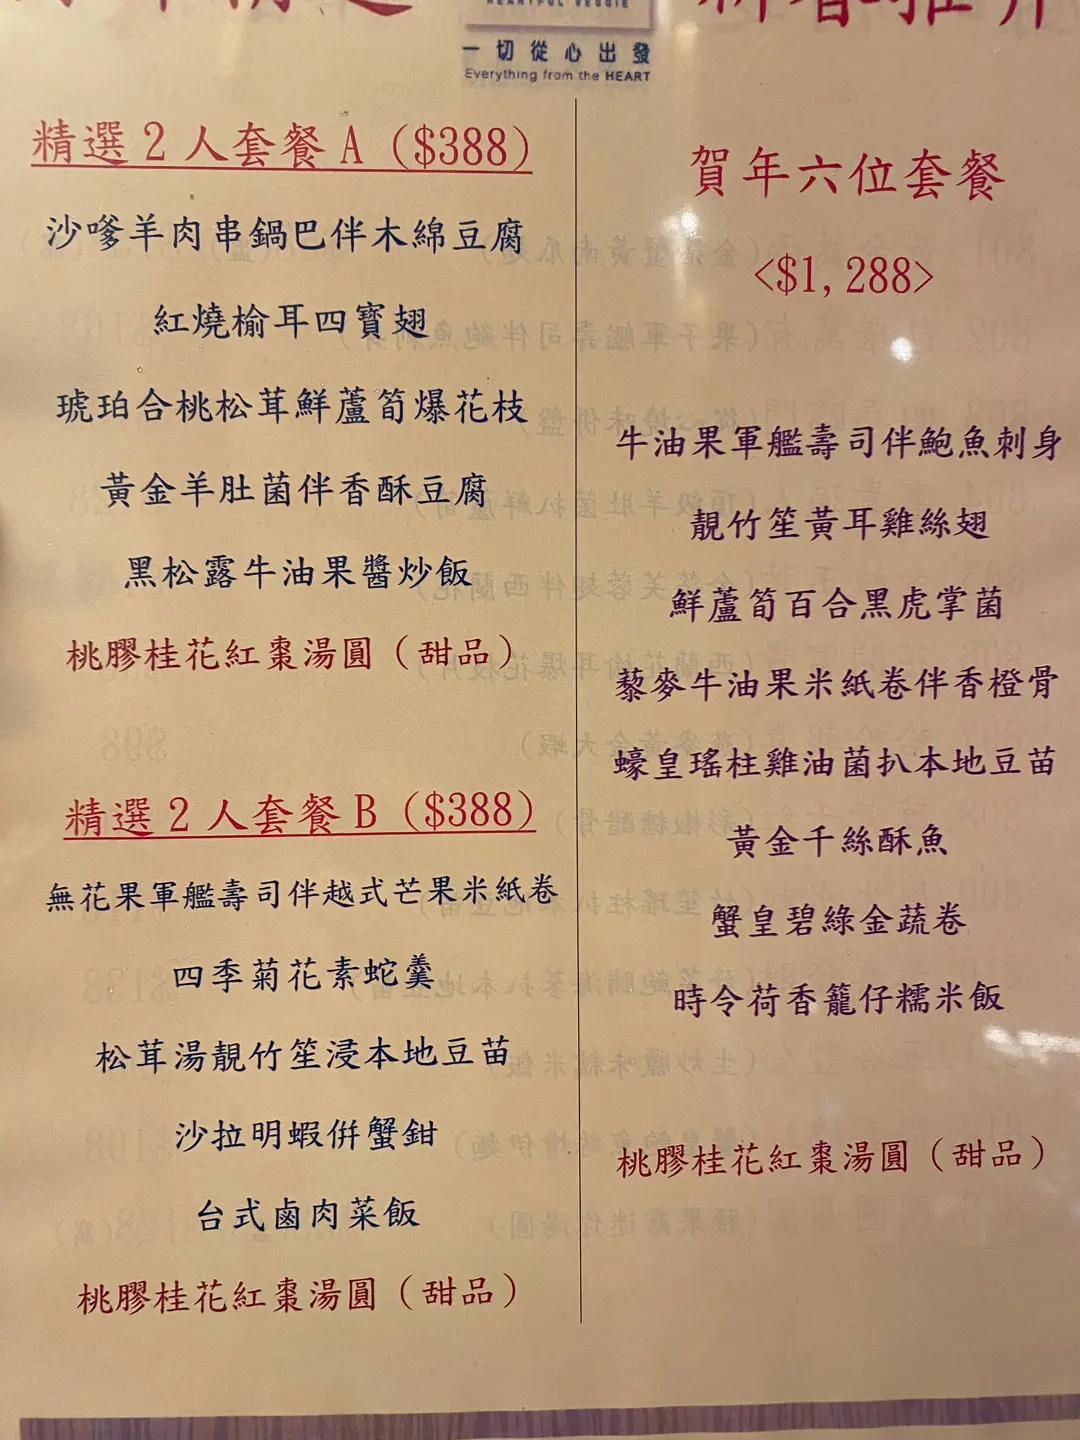 HEARTFUL VEGGIE
一切從心出發
Everything from the HEART
精選2人套餐A($388)
沙嗲羊肉串鍋巴伴木綿豆腐
紅燒榆耳四寶翅
琥珀合桃松茸鮮蘆筍爆花枝
黃金羊肚菌伴香酥豆腐
黑松露牛油果醬炒飯
桃膠桂花紅棗湯圓(甜品)
精選2人套餐B($388)
無花果軍艦壽司伴越式芒果米紙卷
四季菊花素蛇羹
松茸湯靚竹笙浸本地豆苗
沙拉明蝦併蟹鉗
台式鹵肉菜飯
桃膠桂花紅棗湯圓(甜品)
賀年六位套餐
<$1,288>
牛油果軍艦壽司伴鮑魚刺身
靚竹笙黃耳雞絲翅
鮮蘆筍百合黑虎掌菌
藜麥牛油果米紙卷伴香橙骨
蠔皇瑤柱雞油菌扒本地豆苗
黃金千絲酥魚
蟹皇碧綠金蔬卷
時令荷香籠仔糯米飯
桃膠桂花紅棗湯圓(甜品)